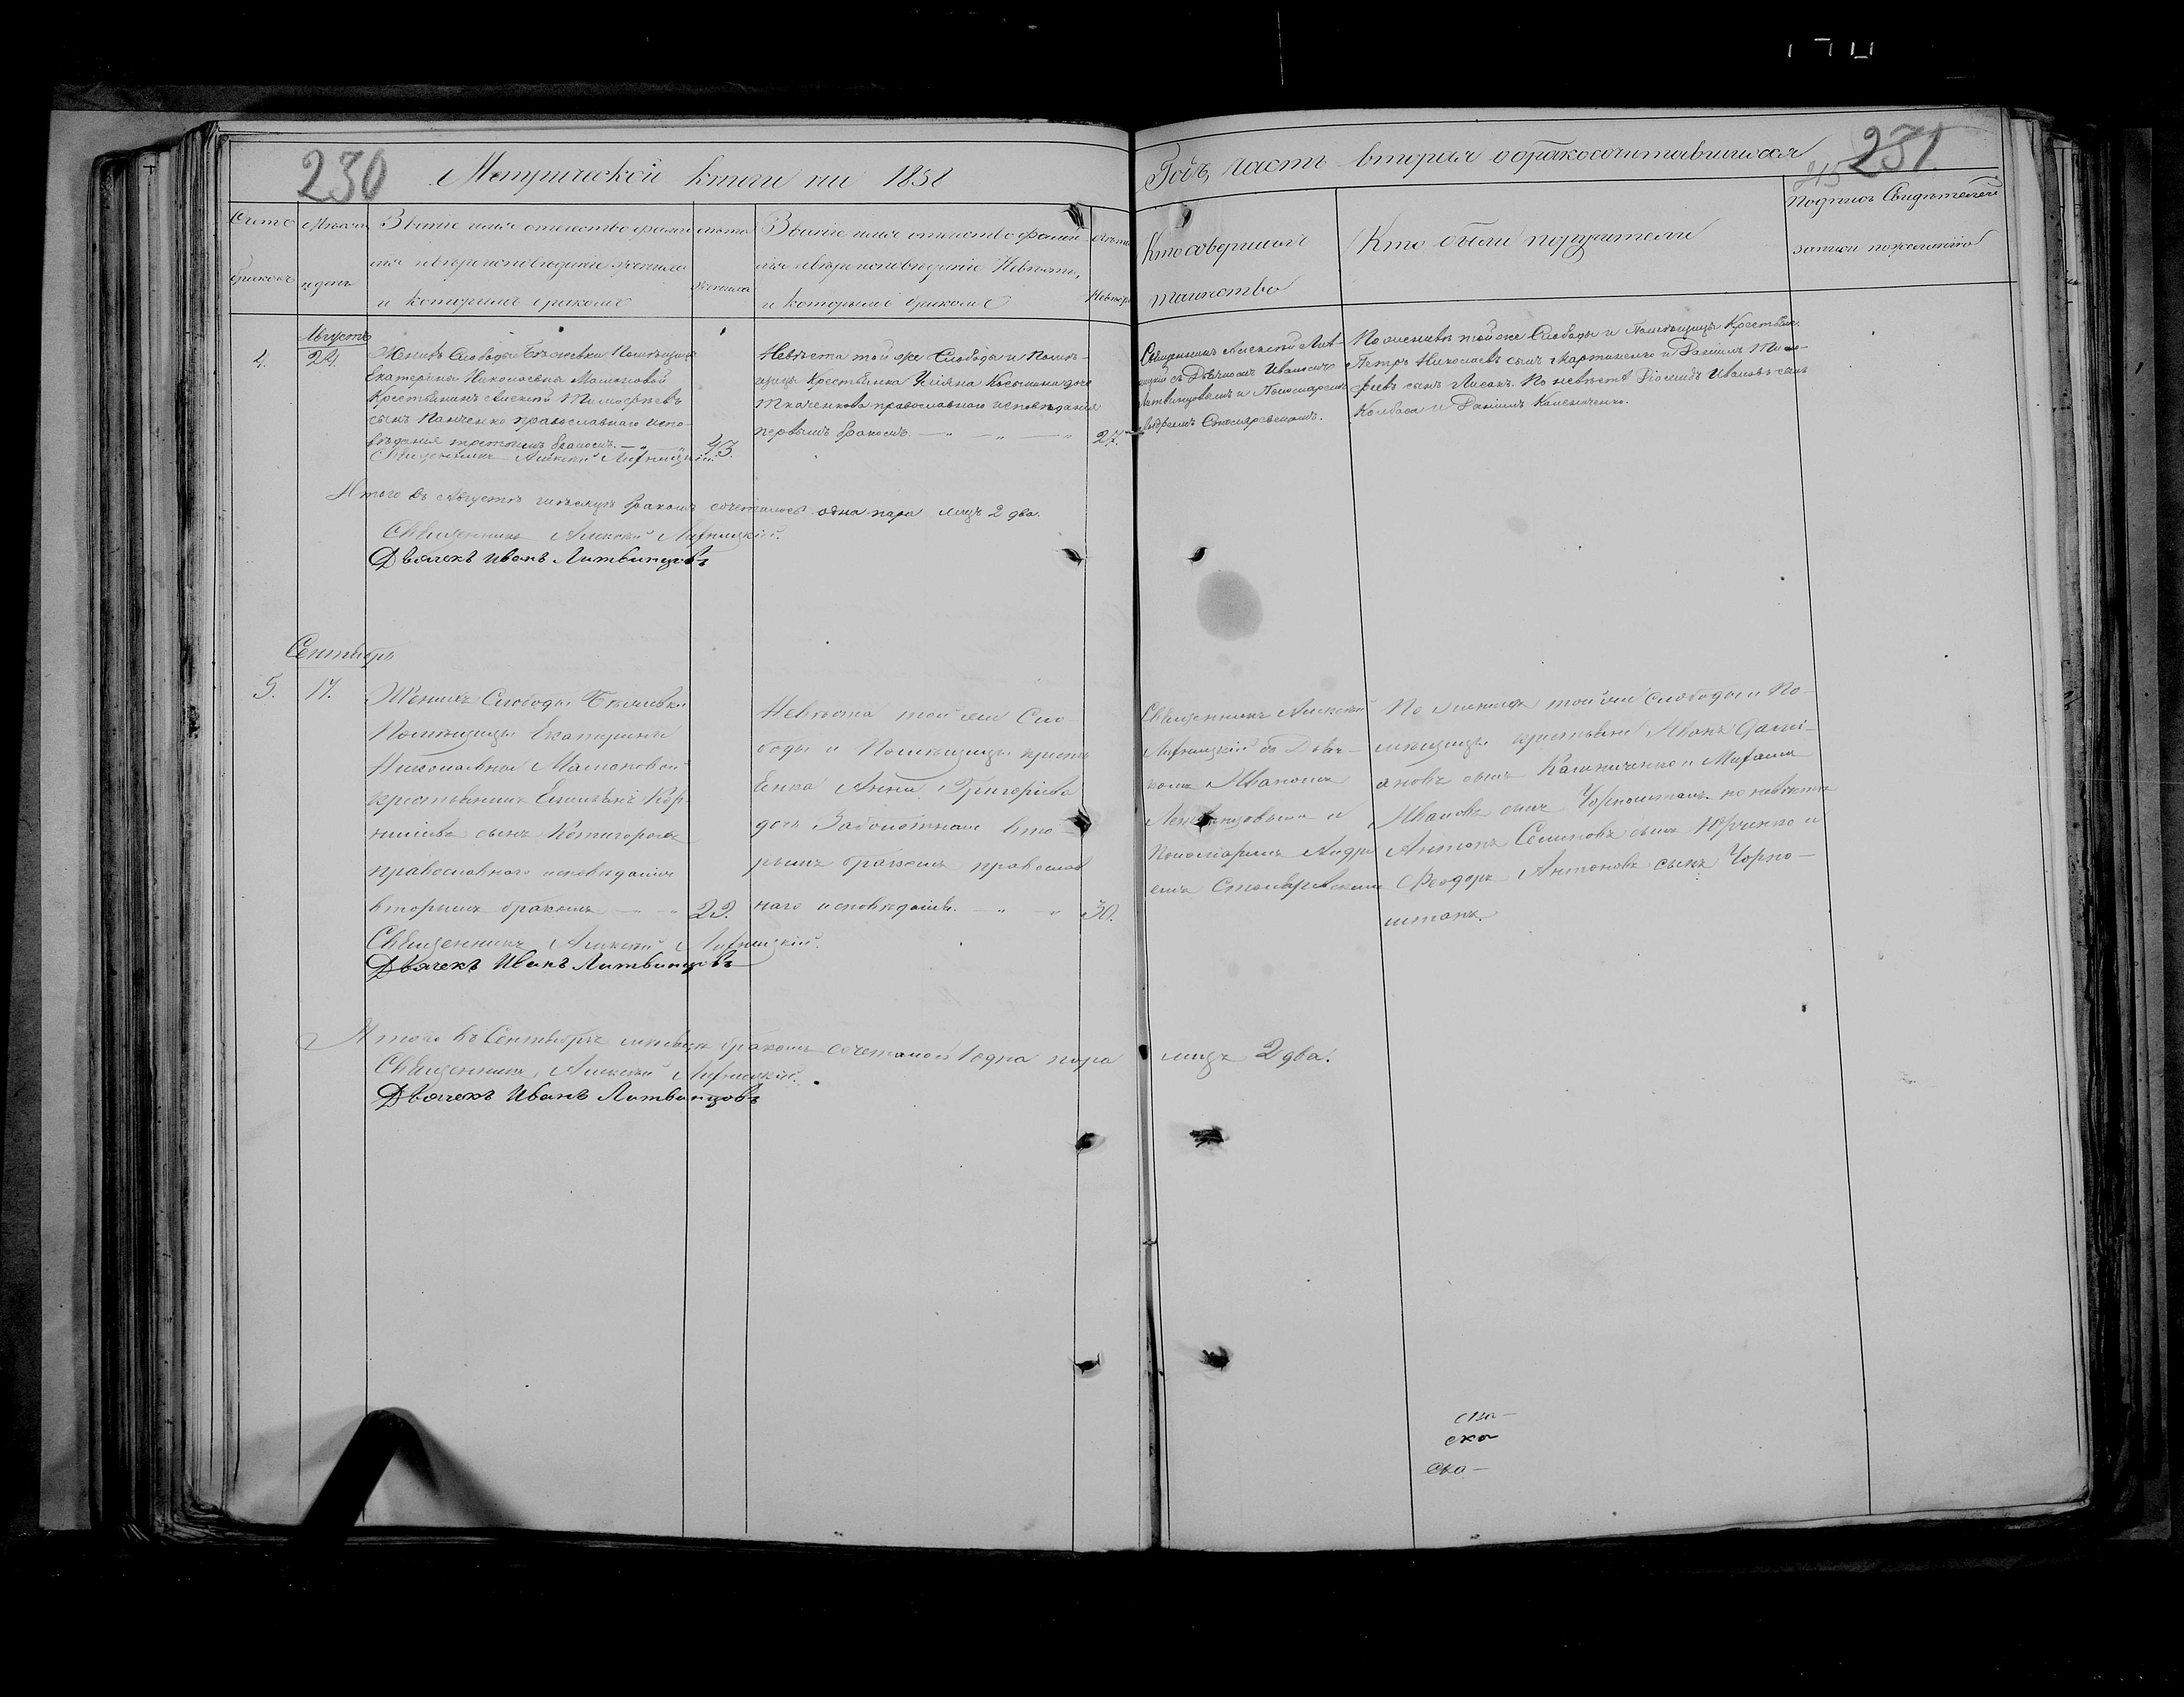 230
Метрической книги на 1858
Годъ, часть вторая о бракосочитавшихся
231
215
Счетъ
браковъ
Мѣсяцъ
и день
Званіе имя отечество фами
лія и вѣроисповѣденіе жениха
и которымъ бракомъ
лѣта
жениха
Званіе имя отечество фами
лія и вѣроисповѣденіе Невѣсты,
и которымъ бракомъ
лѣта
Невѣсты
Кто совершалъ
таинство
Кто были поручители
Подпись Свидетелей
записи по желанію
Августъ
4.
24.
Женихъ Слободы Бѣляевки Помѣщицы
Екатерины Николаевны Мамоновой
Крестьянинъ Алексей Тимофѣевъ
сынъ Панченко православнаго испо-
вѣданія третьимъ бракомъ.
43.
Священникъ Алексей Лифицкій.
Невѣста той же Слободы и Помѣ-
щицы Крестьянка Уліяна Косьмина дочь
Ткаченкова православнаго исповѣданія
первымъ бракомъ.
27.
Священникъ Алексей Лиф-
ицкій съ Дьячкомъ Иваномъ
Литвинцовымъ и Пономаремъ
Андреемъ
По женихѣ той же Слободы и Помѣщицы Крестьяне
Петръ Николаевъ сынъ Мартыненко и Даніилъ Тимо-
фѣевъ сынъ Лисакъ. По невѣстѣ Діомидъ Ивановъ сынъ
Колбаса и Даніилъ
Итого въ Августѣ мѣсяцѣ бракомъ сочеталось одна пара лицъ 2 два.
Священникъ Алексей Лифицкій.
Дьячекъ Иванъ Литвинцовъ
Сентябрь
5.
17.
Женихъ Слободы Бѣляевки
Помѣщицы Екатерины
Николаевны Мамоновой
крестьянинъ Емельянъ Кор-
ниліевъ сынъ
православнаго исповѣданія
вторымъ бракомъ
23.
Священникъ Алексей Лифицкій.
Дьячекъ Иванъ Литвинцовъ
Невѣста той же Сло-
боды и Помѣщицы кресть
янка Анна Григорьева
дочь Заболотная вто
рымъ бракомъ православ
наго исповѣданія.
30.
Священникъ Алексей
Лифицкій съ Дьяч-
комъ Иваномъ
Литвинцовымъ и
Пономаремъ Андре
емъ
По женихѣ той же слободы и По-
мѣщицы крестьяне Иванъ Дамі-
ановъ сынъ Калиниченко и Михаилъ
Ивановъ сынъ Чорноштанъ. по невѣстѣ
Антонъ Семеновъ сынъ Юрченко и
Феодоръ Антоновъ сынъ Чорно-
штанъ.
Итого въ Сентябрѣ мѣсяцѣ бракомъ сочеталось 1 одна пара лицъ 2 два.
Священникъ Алексей Лифицкій.
Дьячекъ Иванъ Литвинцовъ